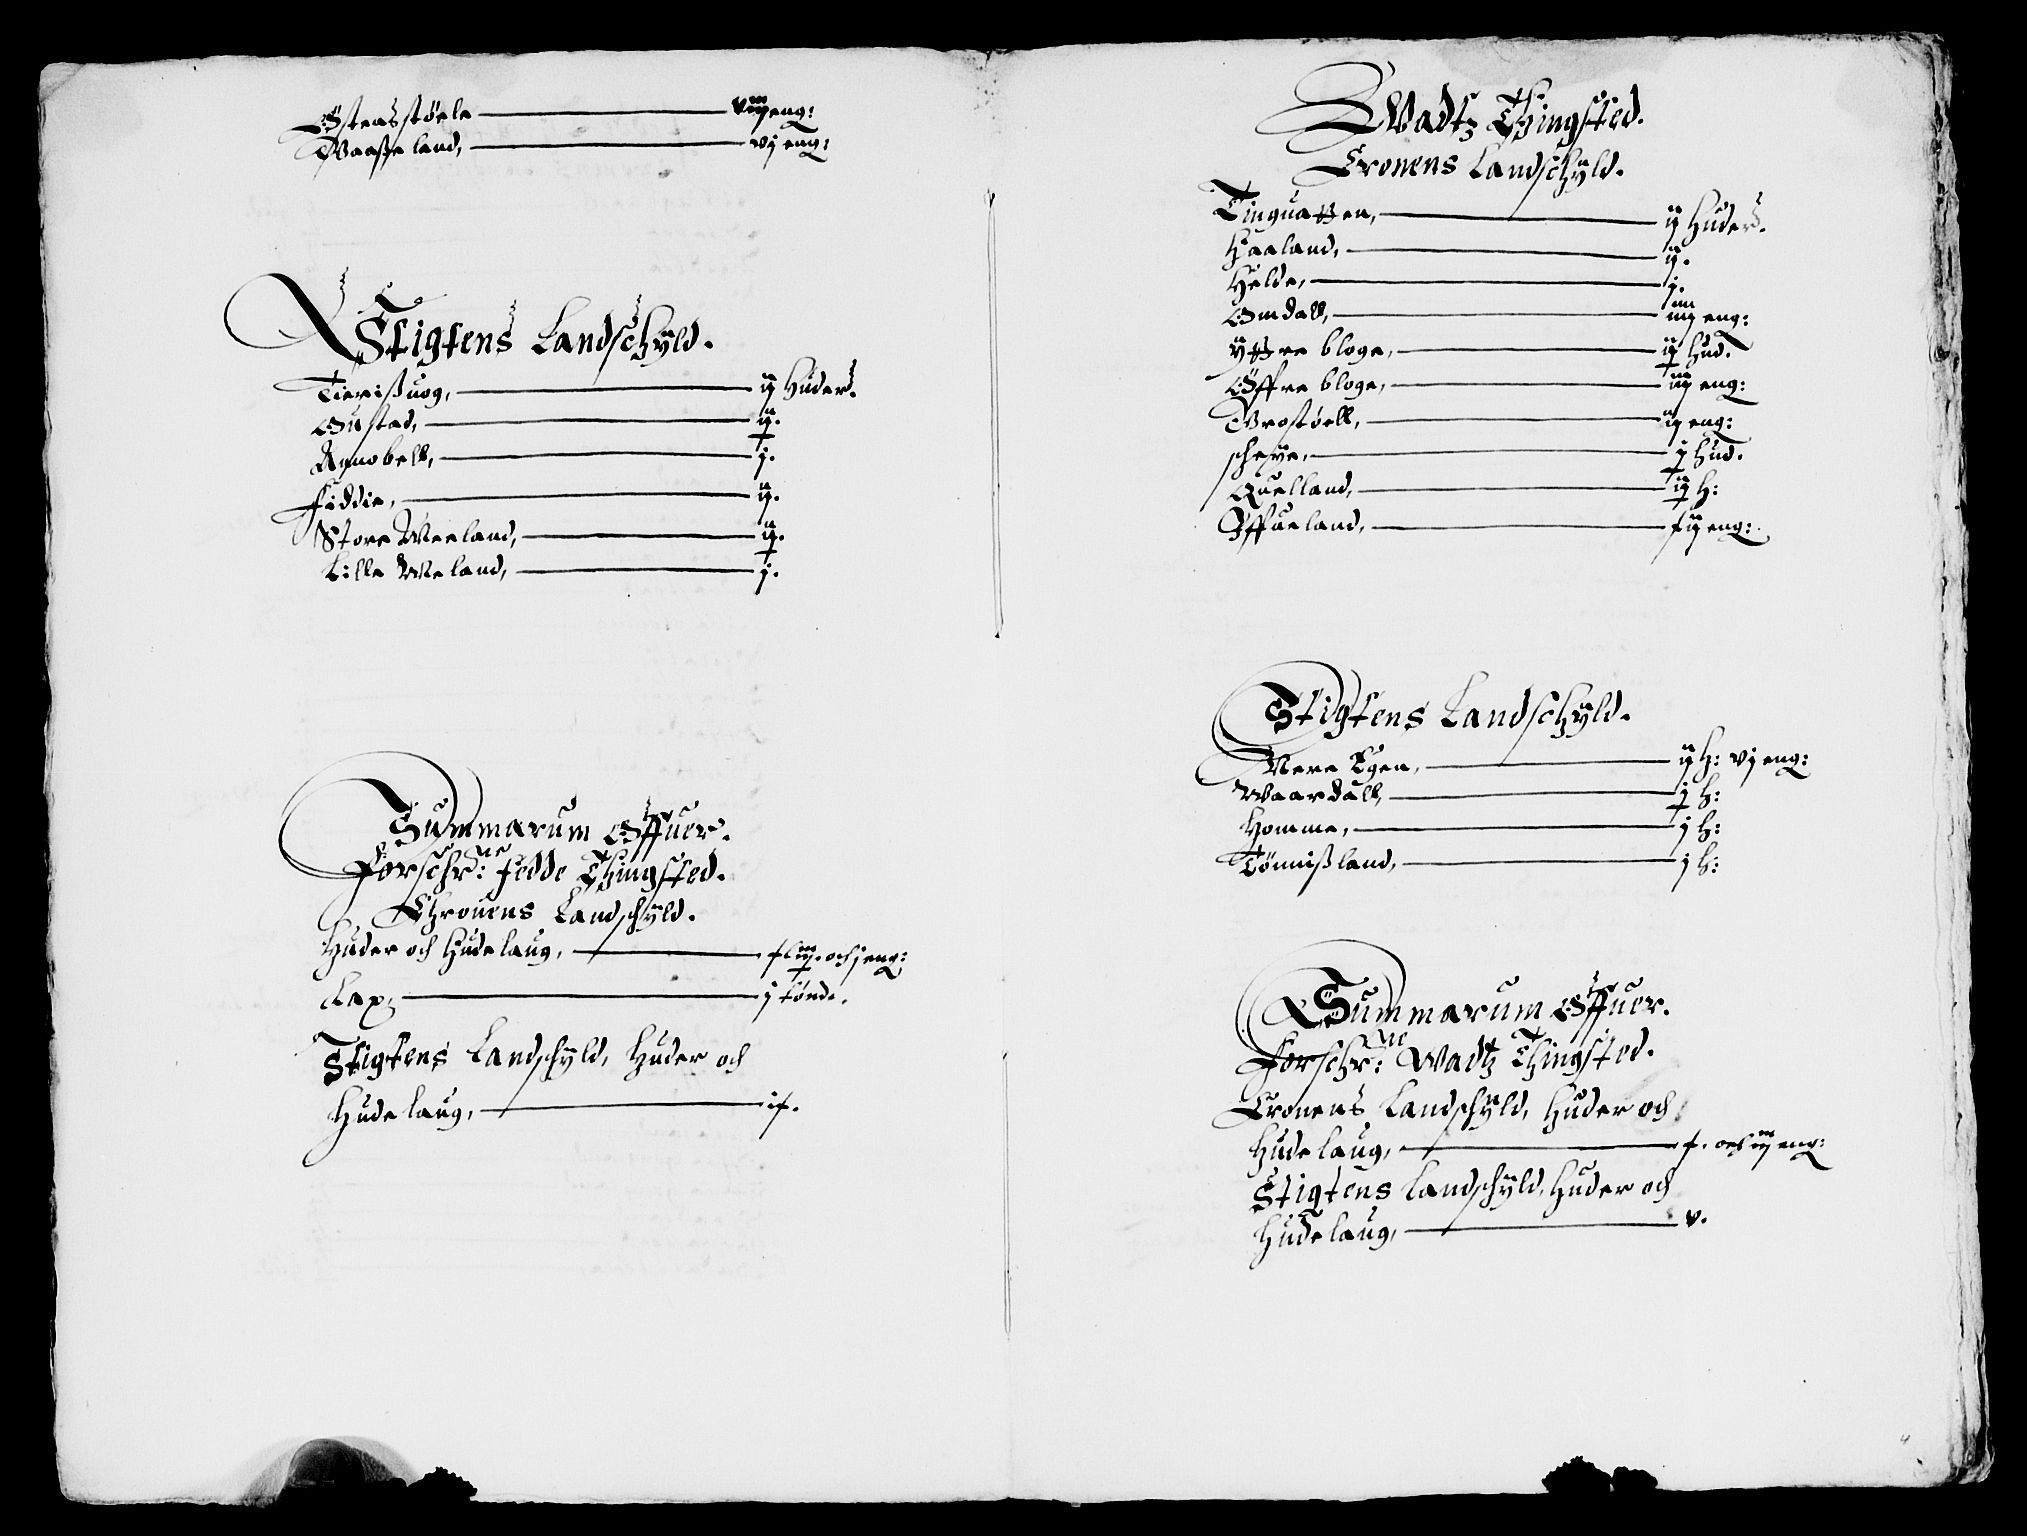 Østensstøele ——— viij eng:
Waaße land, ——— vj eng:
Stigtens Landschyld.
Tierißuog, ——— ij Huder.
Gustad, ——— ij.
Agnobell, ——— j.
Fiddie, ——— ij.
Store Weeland, ——— ij.
Lille Weland, ——— j.
Summarum Offuer.
Forschr:ne Fedde Thingsted.
Chronens Landschyld.
Huder och Hude laug, ——— och j eng:
Lax, ——— j tønde.
Stigtens Landschyld, Huder och
Hude laug, ——— ix.
Wadtz Thingsted.
Cronens Landschyld.
Tinguatten, ——— ij Huder.
Haaland, ——— ij.
Helde, ——— j.
Omdall, ——— iiij eng:
ÿttre bloge, ——— ij Hud.
Øffre bloge, ——— iij eng:
Wrostøell, ——— ij eng:
scheye, ——— j Hud.
Quelland, ——— ij H:
Øffueland, ——— eng:
Stigtens Landschyld.
Nere Egen, ——— ij H: vj eng:
Waardall, ——— j H:
Homme, ——— j H:
Tønnißland, ——— j H:
Summarum Offuer.
Forschr:ne Wadtz Thingsted.
Cronens Landschyld, Huder och
Hude laug, ——— x. och iij eng:
Stigtens Landschyld, Huder och
Hude laug, ——— v.
4